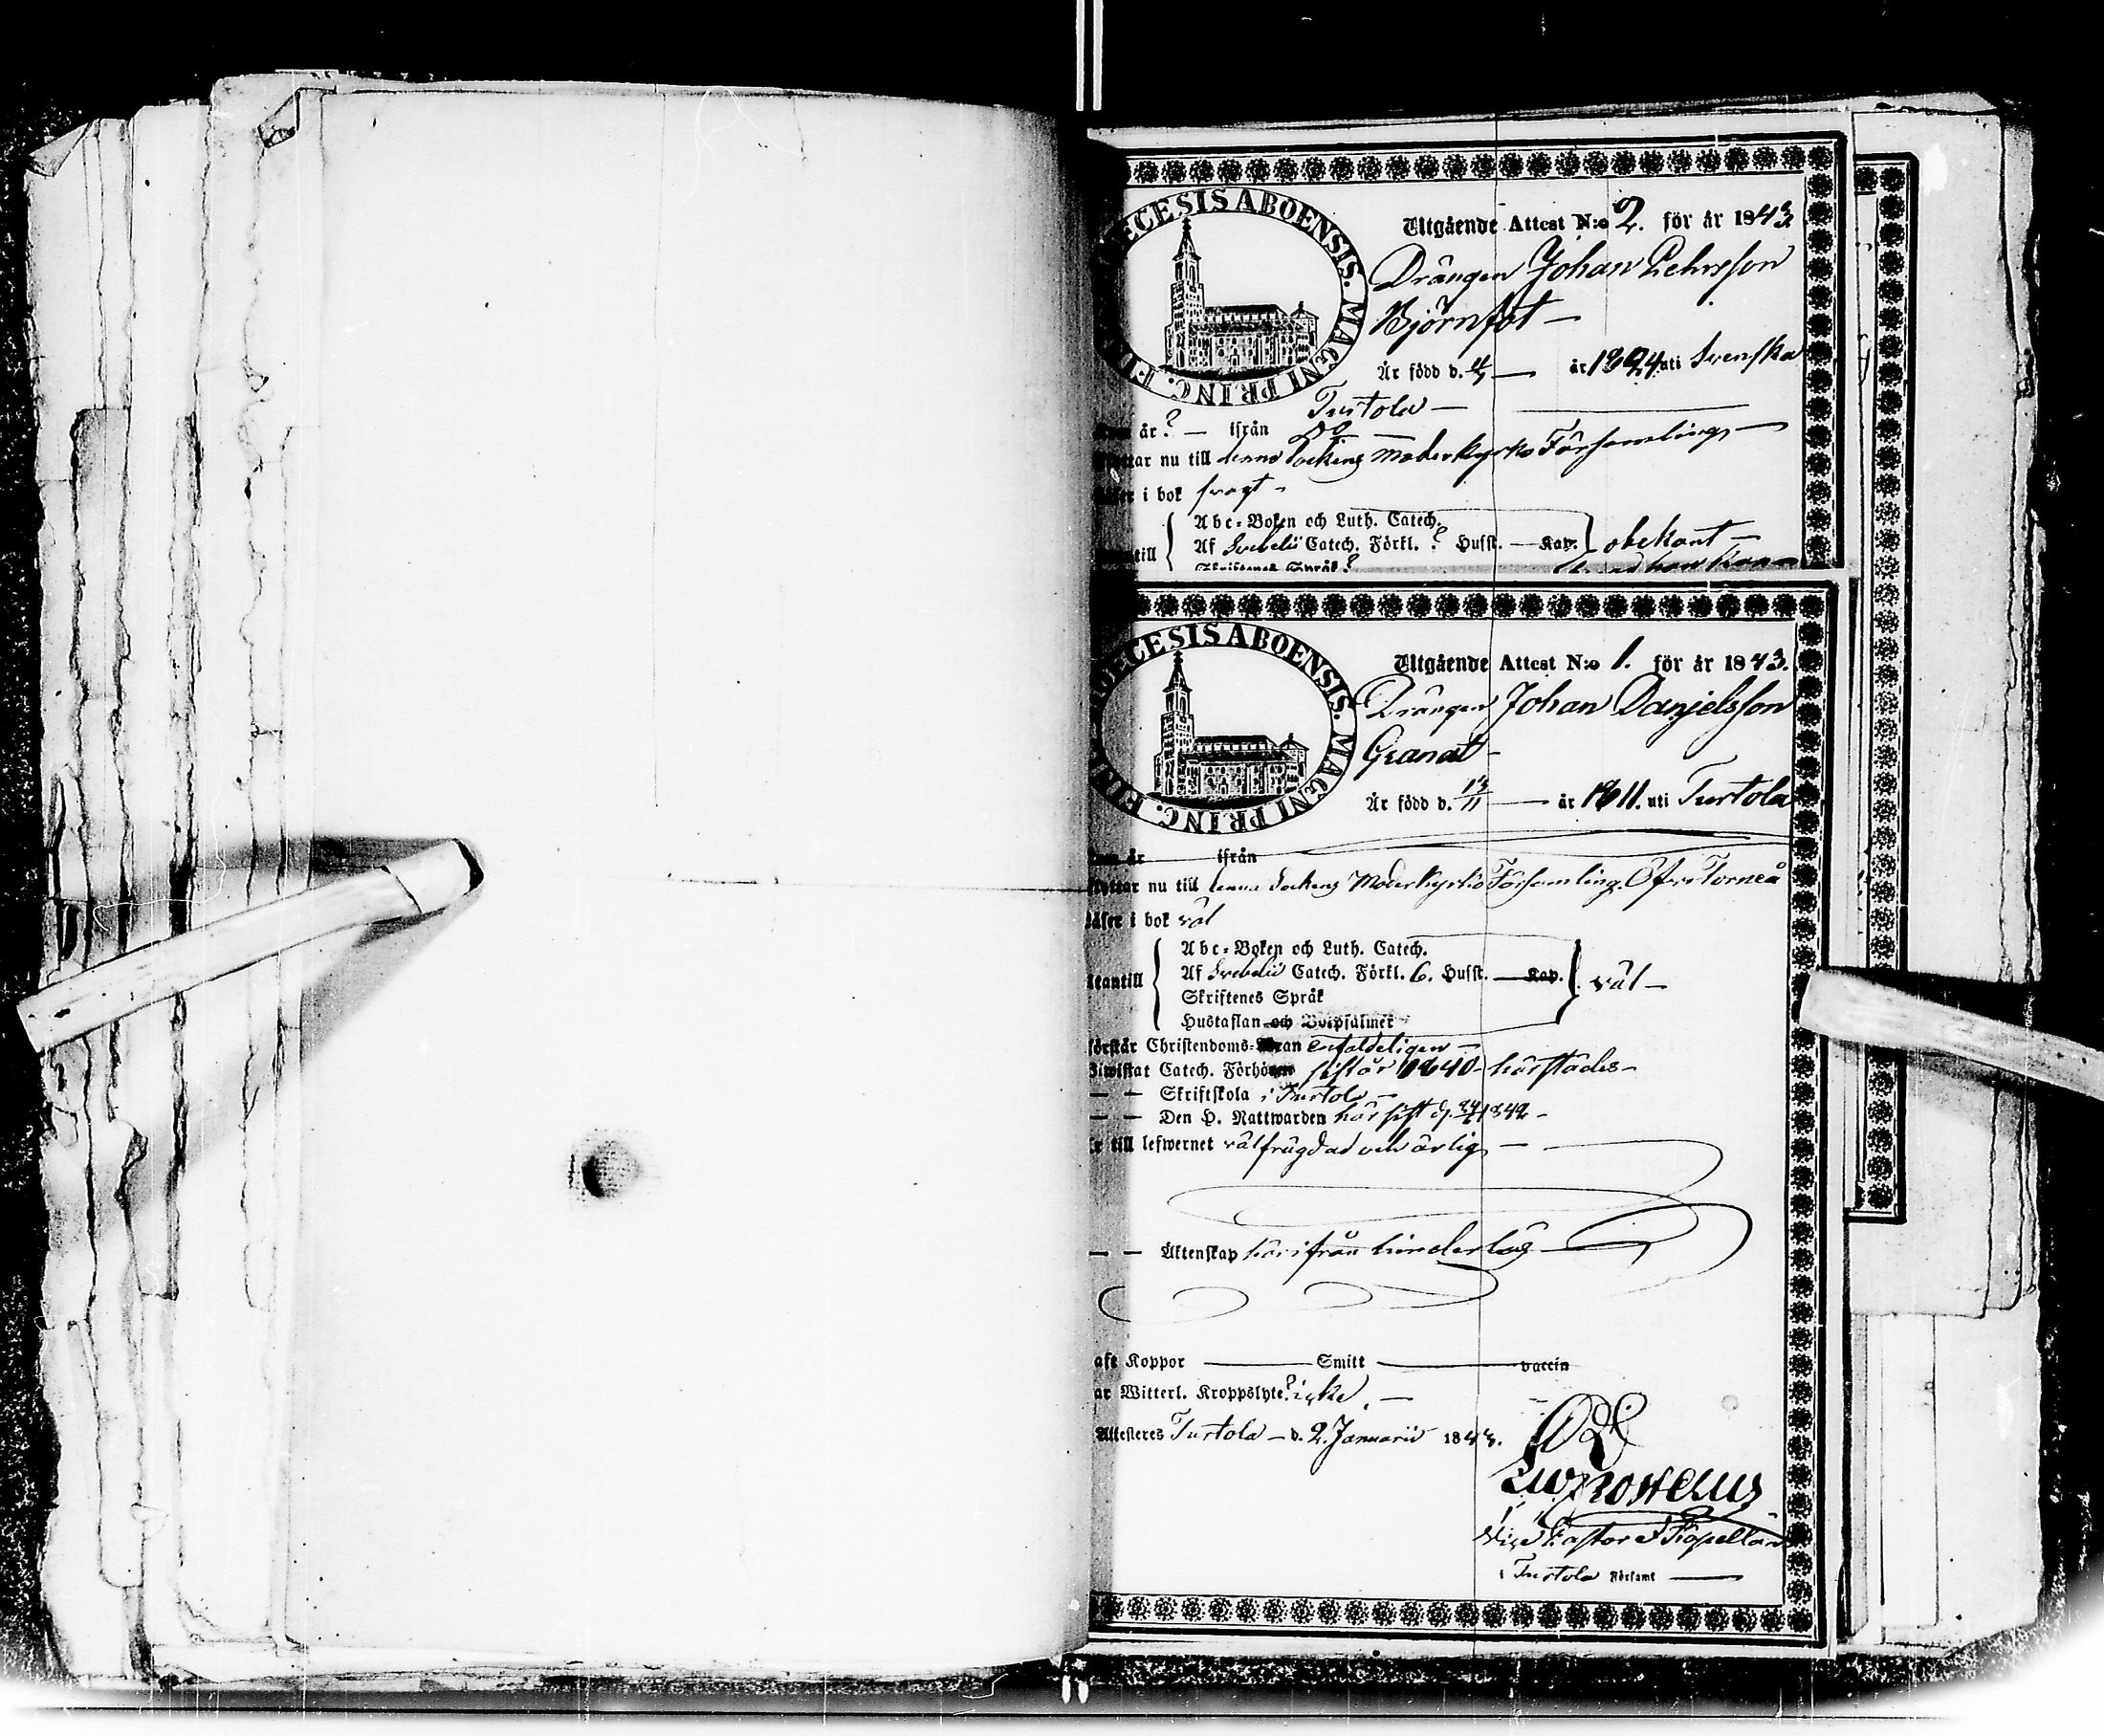 DIOECESIS ABOENSIS. MAGNI PRINC. FINL.
Utgående Attest N:o 2. för år 1843.
Drängen Johan Pehrsson
Björnfot —
Är född d. — år 1824 uti Svenska
Turtola —
år? — ifrån Do —
nu till denna Sockens Moderkyrko Församling —
i bok svagt —
till
Abc-Boken och Luth. Catech.
Af Svebelii Catech. Förkl. ? Husft. — Kap. } obekant —
Skriftenes Språk?
DIOECESIS ABOENSIS. MAGNI PRINC. FINL.
Utgående Attest N:o 1. för år 1843.
Drängen Johan Danjelsson
Granat —
Är född d. 13/11 — år 1811. uti Turtola
Kom år ifrån
flyttar nu till denna Sockens Moderkyrko Församling. Öfver Torneå
läser i bok väl
utantill
Abc-Boken och Luth. Catech.
Af Svebelii Catech. Förkl. 6. Husft. — Kap. } väl —
Skriftenes Språk
Hustaflan och Botpsalmer
förstår Christendoms-Läran enfaldeligen —
Biwistat Catech. Förhören sistår 1840 härstädes —
— — Skriftskola i Turtola —
— — Den H. Nattwarden här sist d. 1842 —
Är till lefwernet välfrägdad och ärlig —
— — Äktenskap härifrån hinderlös —
aft Koppor — Smitt — vaccin
ar Witterl. Kroppslyte? icke. —
Attesteres Turtola — d. 2. Januarii 1843.
Vice Pastor & Kapellan
i Turtola Församl. —